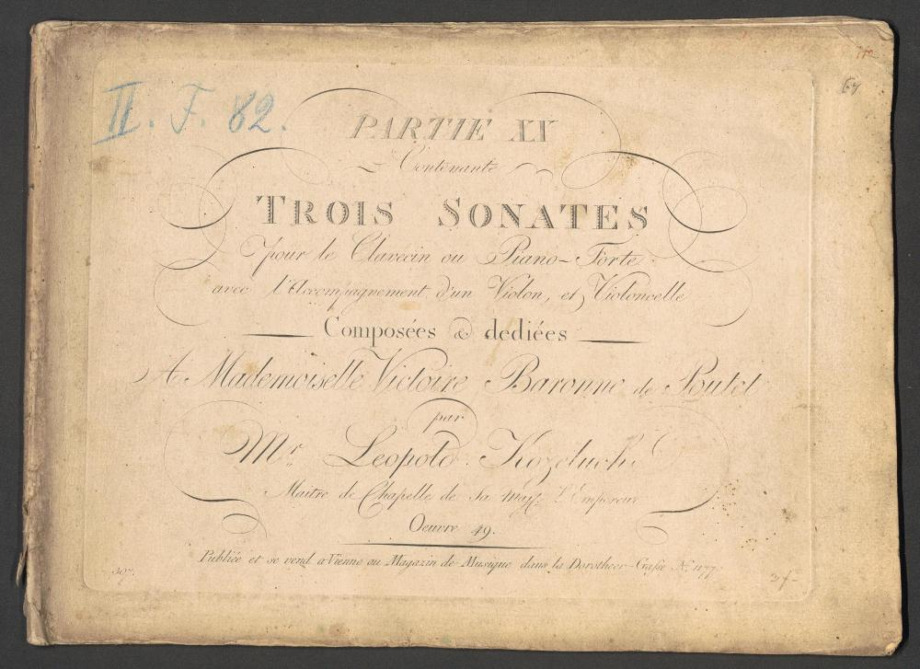 II. F. 82.
67
PARTIE XV
Contenante
TROIS SONATES
pour le Clavecin ou Piano-Forte
avec l'Accompagnement d'un Violon, et Violoncelle
Composées & dediées
A Mademoiselle Victoire Baronne de Poutet
par
Mr. Leopold Kozeluch
Maitre de Chapelle de sa Maj: l'Empereur
Oeuvre 49.
Publiée et se vend a Vienne au Magazin de Musique dans la Dorotheer-Gasse No. 1177